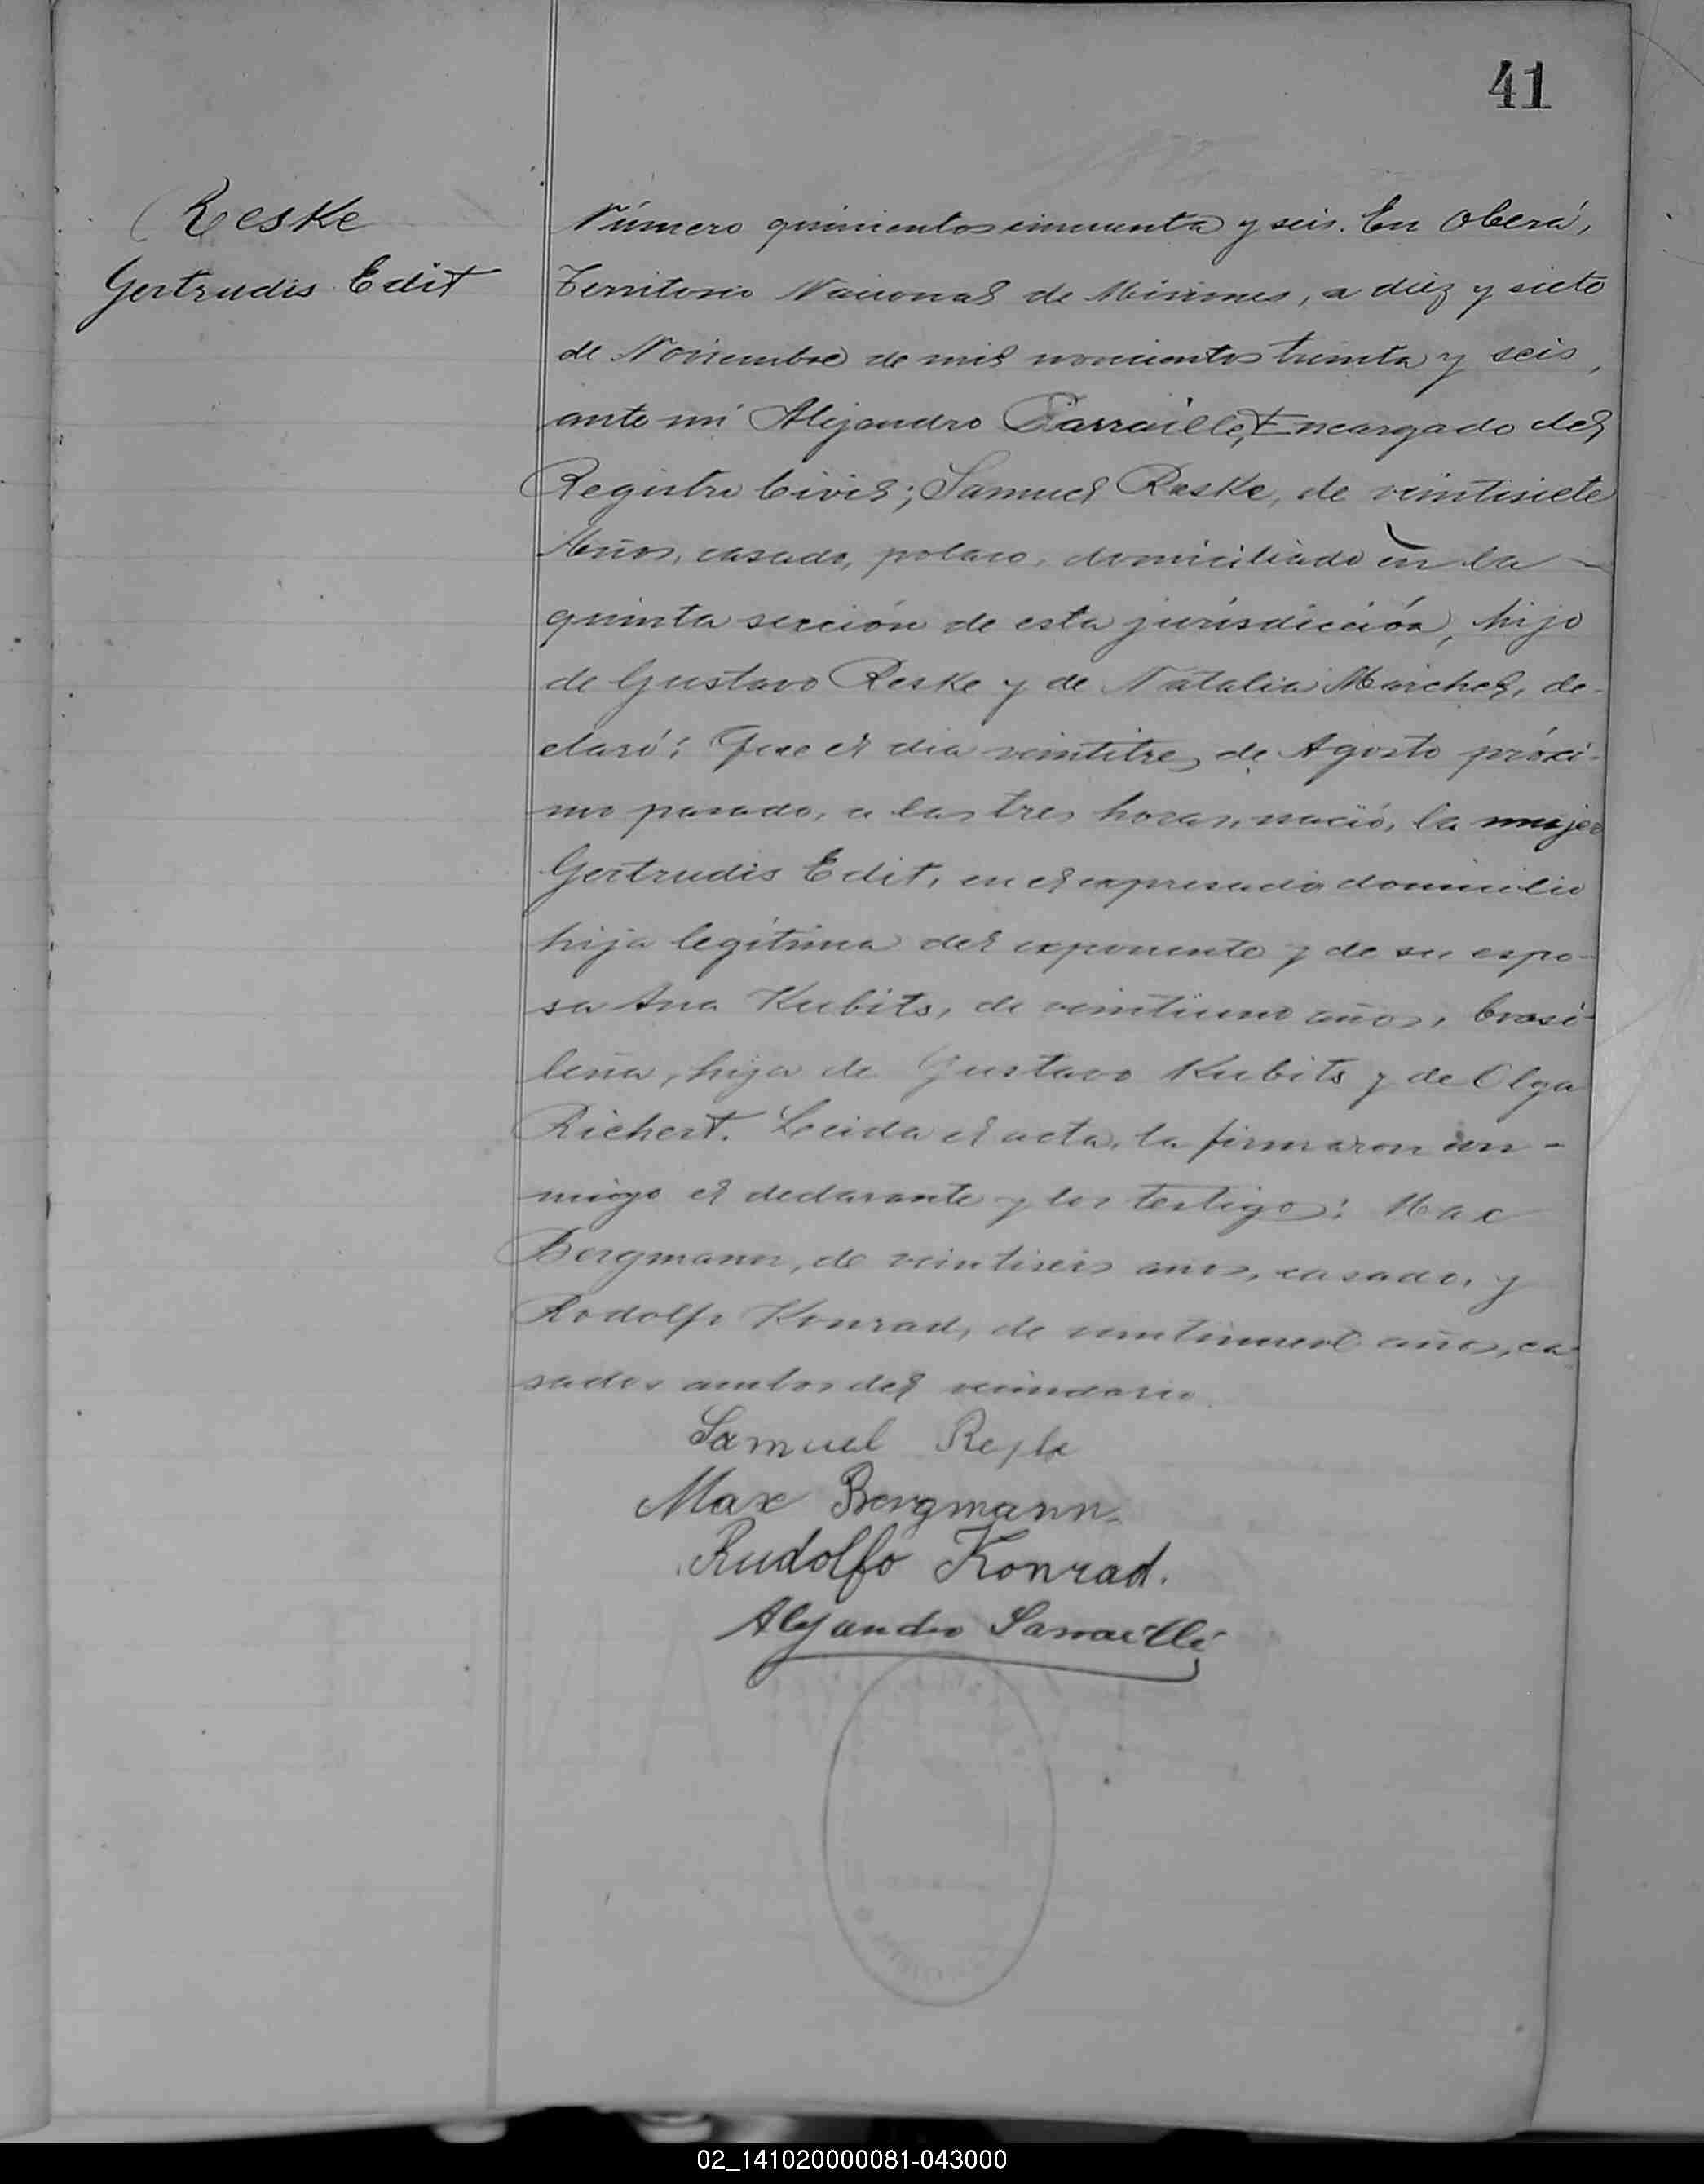 41
Reske
Gertrudis Edit
Número quinientos cincuenta y seis. En Oberá,
Territorio Nacional de Misiones, a diez y siete
de Noviembre de mil novecientos treinta y seis,
ante mí Alejandro Sarraillé, Encargado del
Registro Civil; Samuel Reske, de veintisiete
Años, casado, polaco, domiciliado en la
quinta sección de esta jurisdicción, hijo
de Gustavo Reske y de Natalia Marchel, de-
claró: Que el dia veintitres de Agosto próxi-
mo pasado, a las tres horas, nació, la mujer
Gertrudis Edit, en el expresado domicilio
hija legítima del exponente y de su espo-
sa Ana Kubits, de veintiuno años, brasi-
leña, hija de Gustavo Kubits y de Olga
Richert. Leida el acta, la firmaron con-
migo el declarante y los testigos: Max
Bergmann, de veintiseis años, casado, y
Rodolfo Konrad, de veintinueve años, ca
sado, ambos del vecindario.
Samuel Reske
Max Bergmann.
Rudolfo Konrad.
Alejandro Sarraillé
02_141020000081-043000